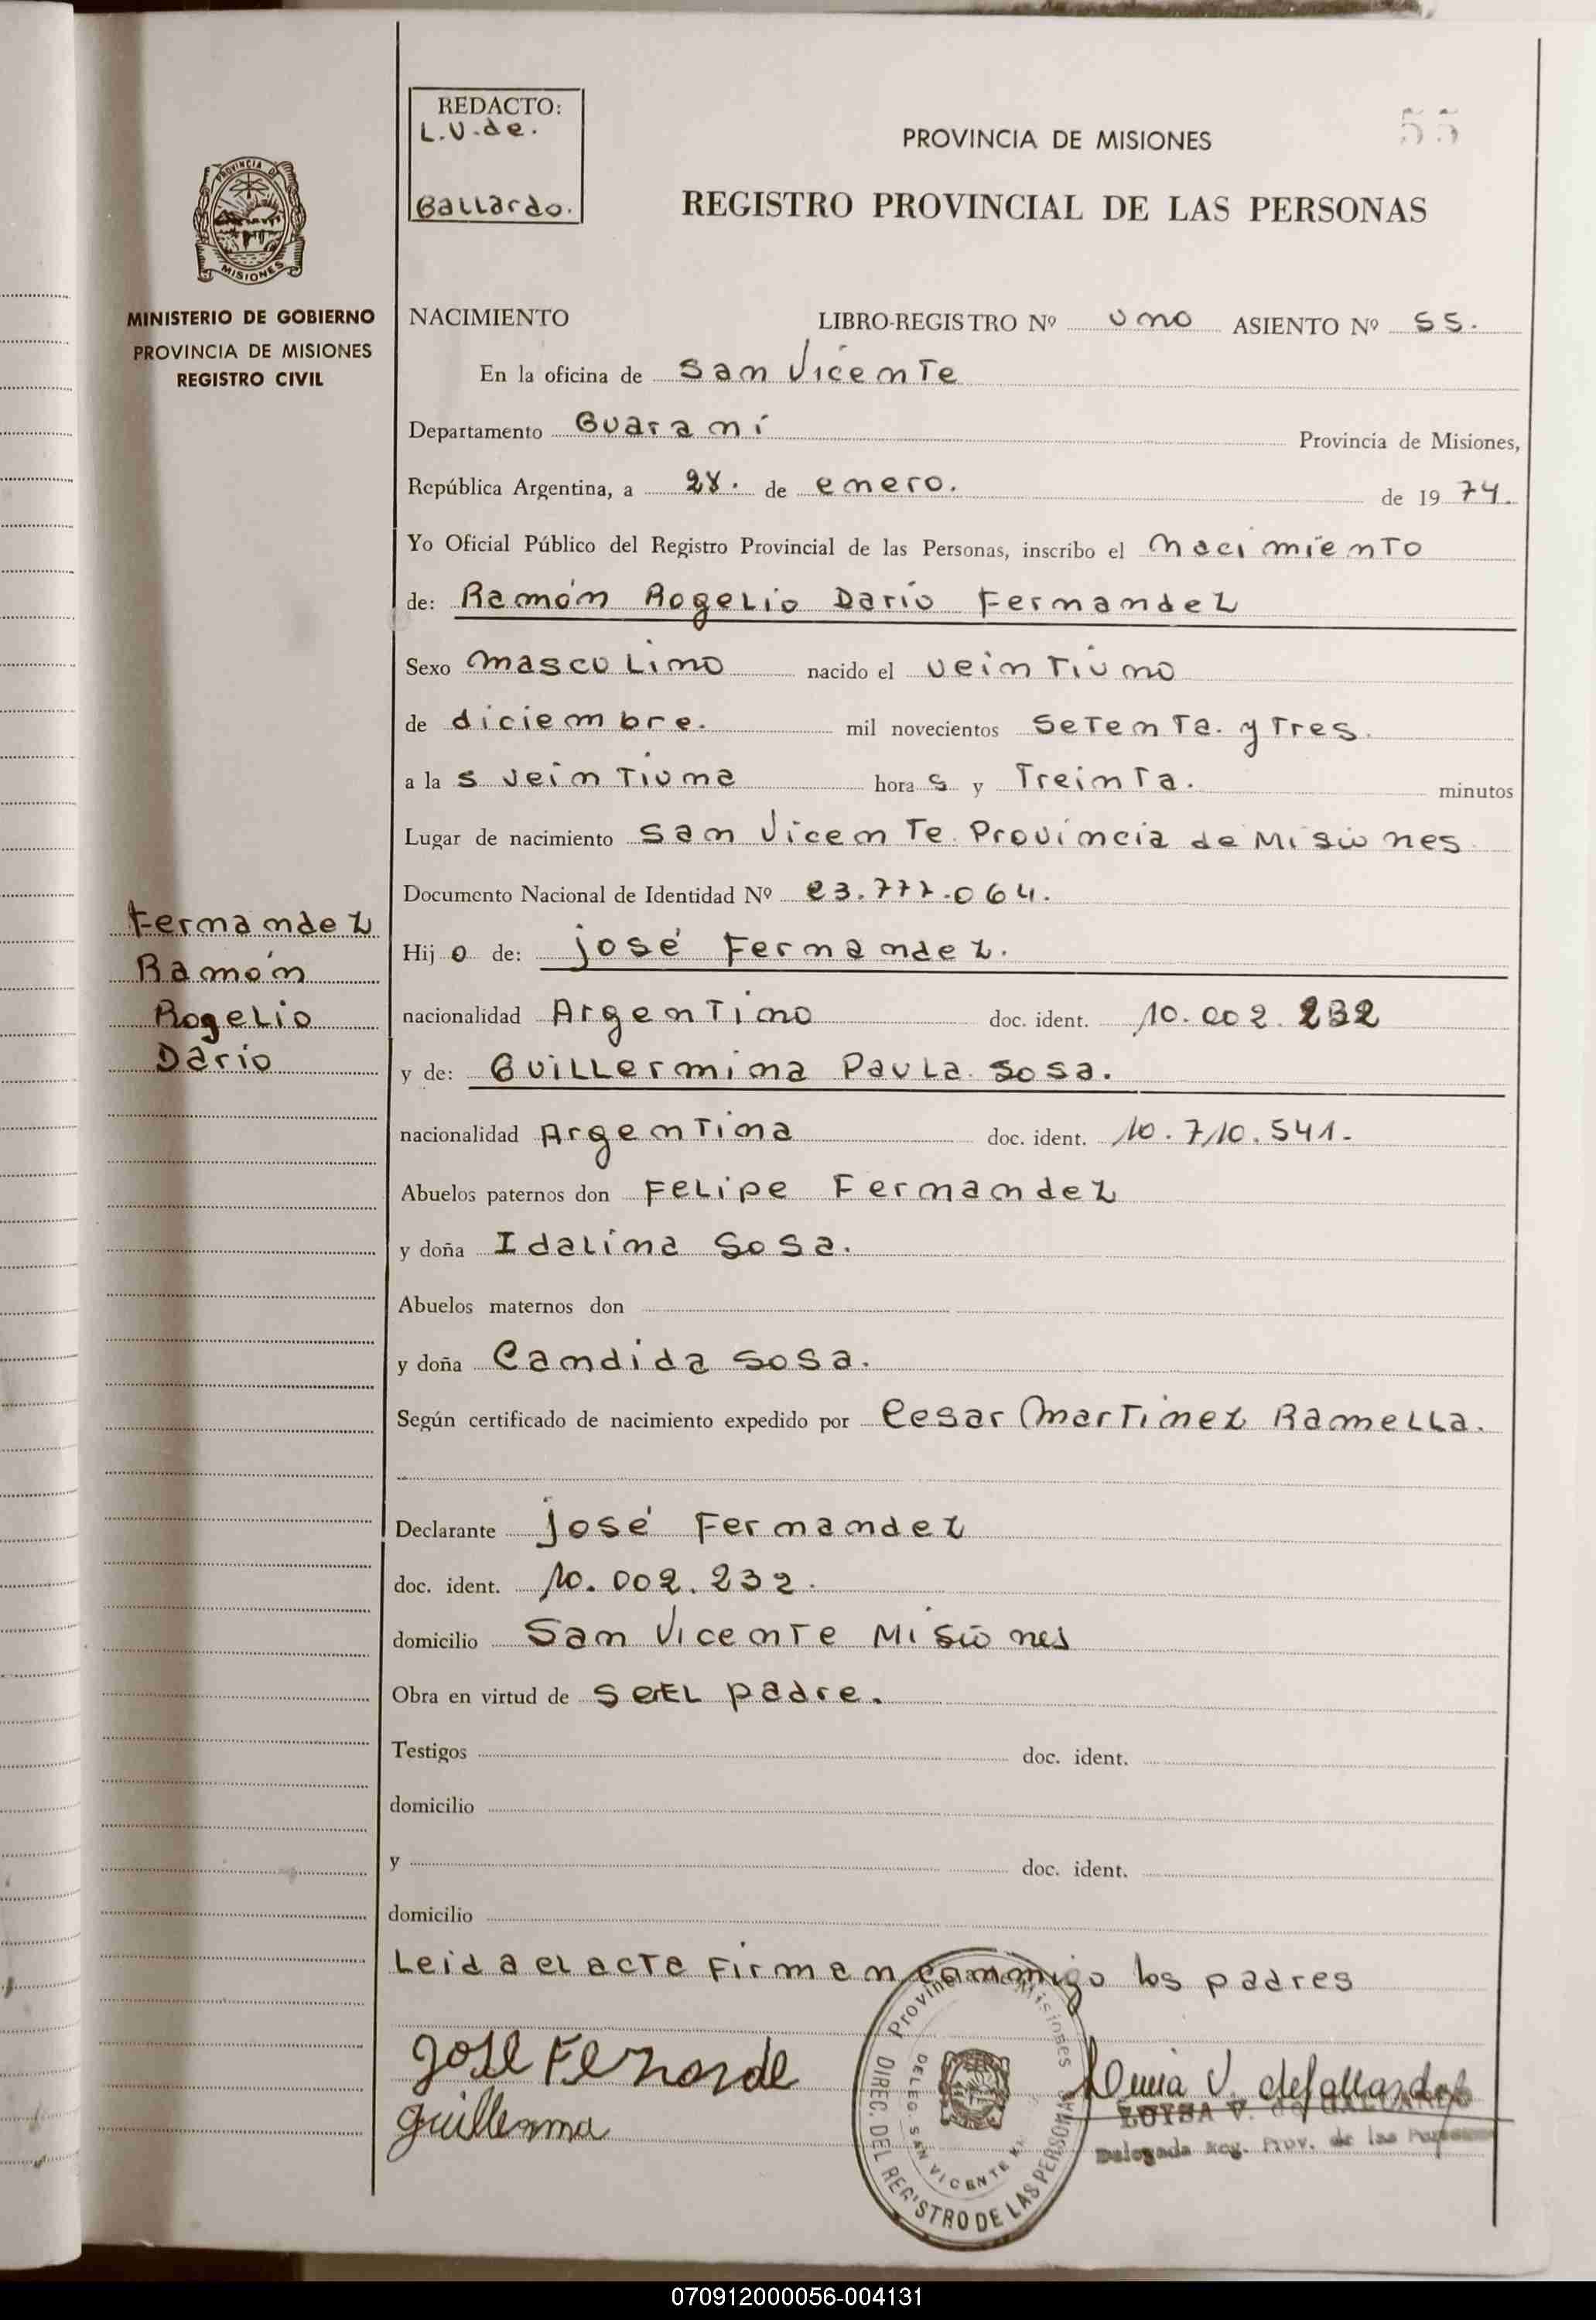 REDACTO:
L.V.de.
Gallardo.
55
PROVINCIA DE MISIONES
REGISTRO PROVINCIAL DE LAS PERSONAS
PROVINCIA DE
MISIONES
MINISTERIO DE GOBIERNO
PROVINCIA DE MISIONES
REGISTRO CIVIL
NACIMIENTO LIBRO-REGISTRO Nº uno ASIENTO Nº 55.
En la oficina de San Vicente
Departamento Guaraní Provincia de Misiones,
República Argentina, a 28. de enero. de 1974.
Yo Oficial Público del Registro Provincial de las Personas, inscribo el Nacimiento
de: Ramón Rogelio Darío Fernandez
Sexo masculino nacido el veintiuno
de diciembre. mil novecientos setenta. y tres.
a las veintiuna horas y Treinta. minutos
Lugar de nacimiento San Vicente Provincia de Misiones
Documento Nacional de Identidad Nº 23.777.064.
Fernandez
Ramón
Rogelio
Dario
Hijo de: José Fernandez.
nacionalidad Argentino doc. ident. 10.002.232
y de: Guillermina Paula Sosa.
nacionalidad Argentina doc. ident. 10.710.541.
Abuelos paternos don Felipe Fernandez
y doña Idalina Sosa.
Abuelos maternos don
y doña Candida Sosa.
Según certificado de nacimiento expedido por Cesar Martinez Ramella.
Declarante José Fernandez
doc. ident. 10.002.232.
domicilio San Vicente Misiones
Obra en virtud de ser el padre.
Testigos doc. ident.
domicilio
y doc. ident.
domicilio
Leida el acta firman conmigo los padres
José Fernande
Guillerma
Provincia Misiones
DIREC. DEL REGISTRO DE LAS PERSONAS
DELEG. SAN VICENTE
V. de Gallardo
LUISA V. de GALLARDO
Delegada Reg. Prov. de las Personas
070912000056-004131